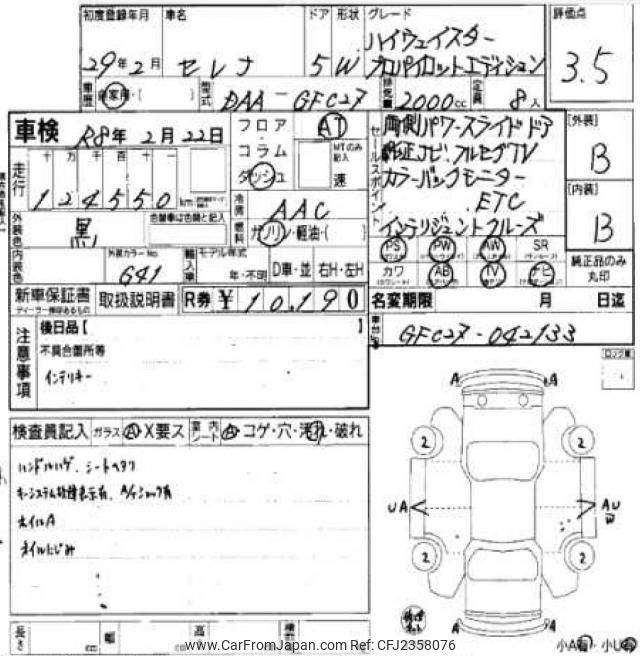 初度登録年月 車名 ドア 形状 グレード 評価点
29年2月 セレナ 5 W ハイウェイスター
プロパイロットエディション 3.5
車歴 自家用・( ) 型式 DAA-GFC27 排気量 2000cc 定員 8人
車検 R8年2月22日
走行 十万千百十一
124550 km
フロア AT
コラム MTのみ記入
ダッシュ 速
冷房 AAC
燃料 ガソリン・軽油・( )
外装色 黒 色替車は色替と記入
内装色 外装カラーNo. 641
輸入車 モデル年式 年・不明 D車・並 右H・左H
セールスポイント
両側パワースライドドア
純正ナビ・フルセグTV
カラーバックモニター
ETC
インテリジェントクルーズ
[外装] B
[内装] B
PS PW AW SR
カワ AB TV ナビ
純正品のみ丸印
新車保証書 取扱説明書 R券 ¥10,190
ディーラー捺印あるもの
名変期限 月 日迄
車台No GFC27-042133
注意事項
後日品【 】
不具合箇所等
インテリキー
検査員記入 ガラス A・X要ス 室内シート A・コゲ・穴・汚れ・破れ
ハンドルハゲ、シートヘタリ
キーシステム故障表示有、
ホイルA
オイルにじみ
A A
2 2
UA AU
2 2
A A
長さ cm 幅 cm 高
小A 小U
www.CarFromJapan.com Ref: CFJ2358076